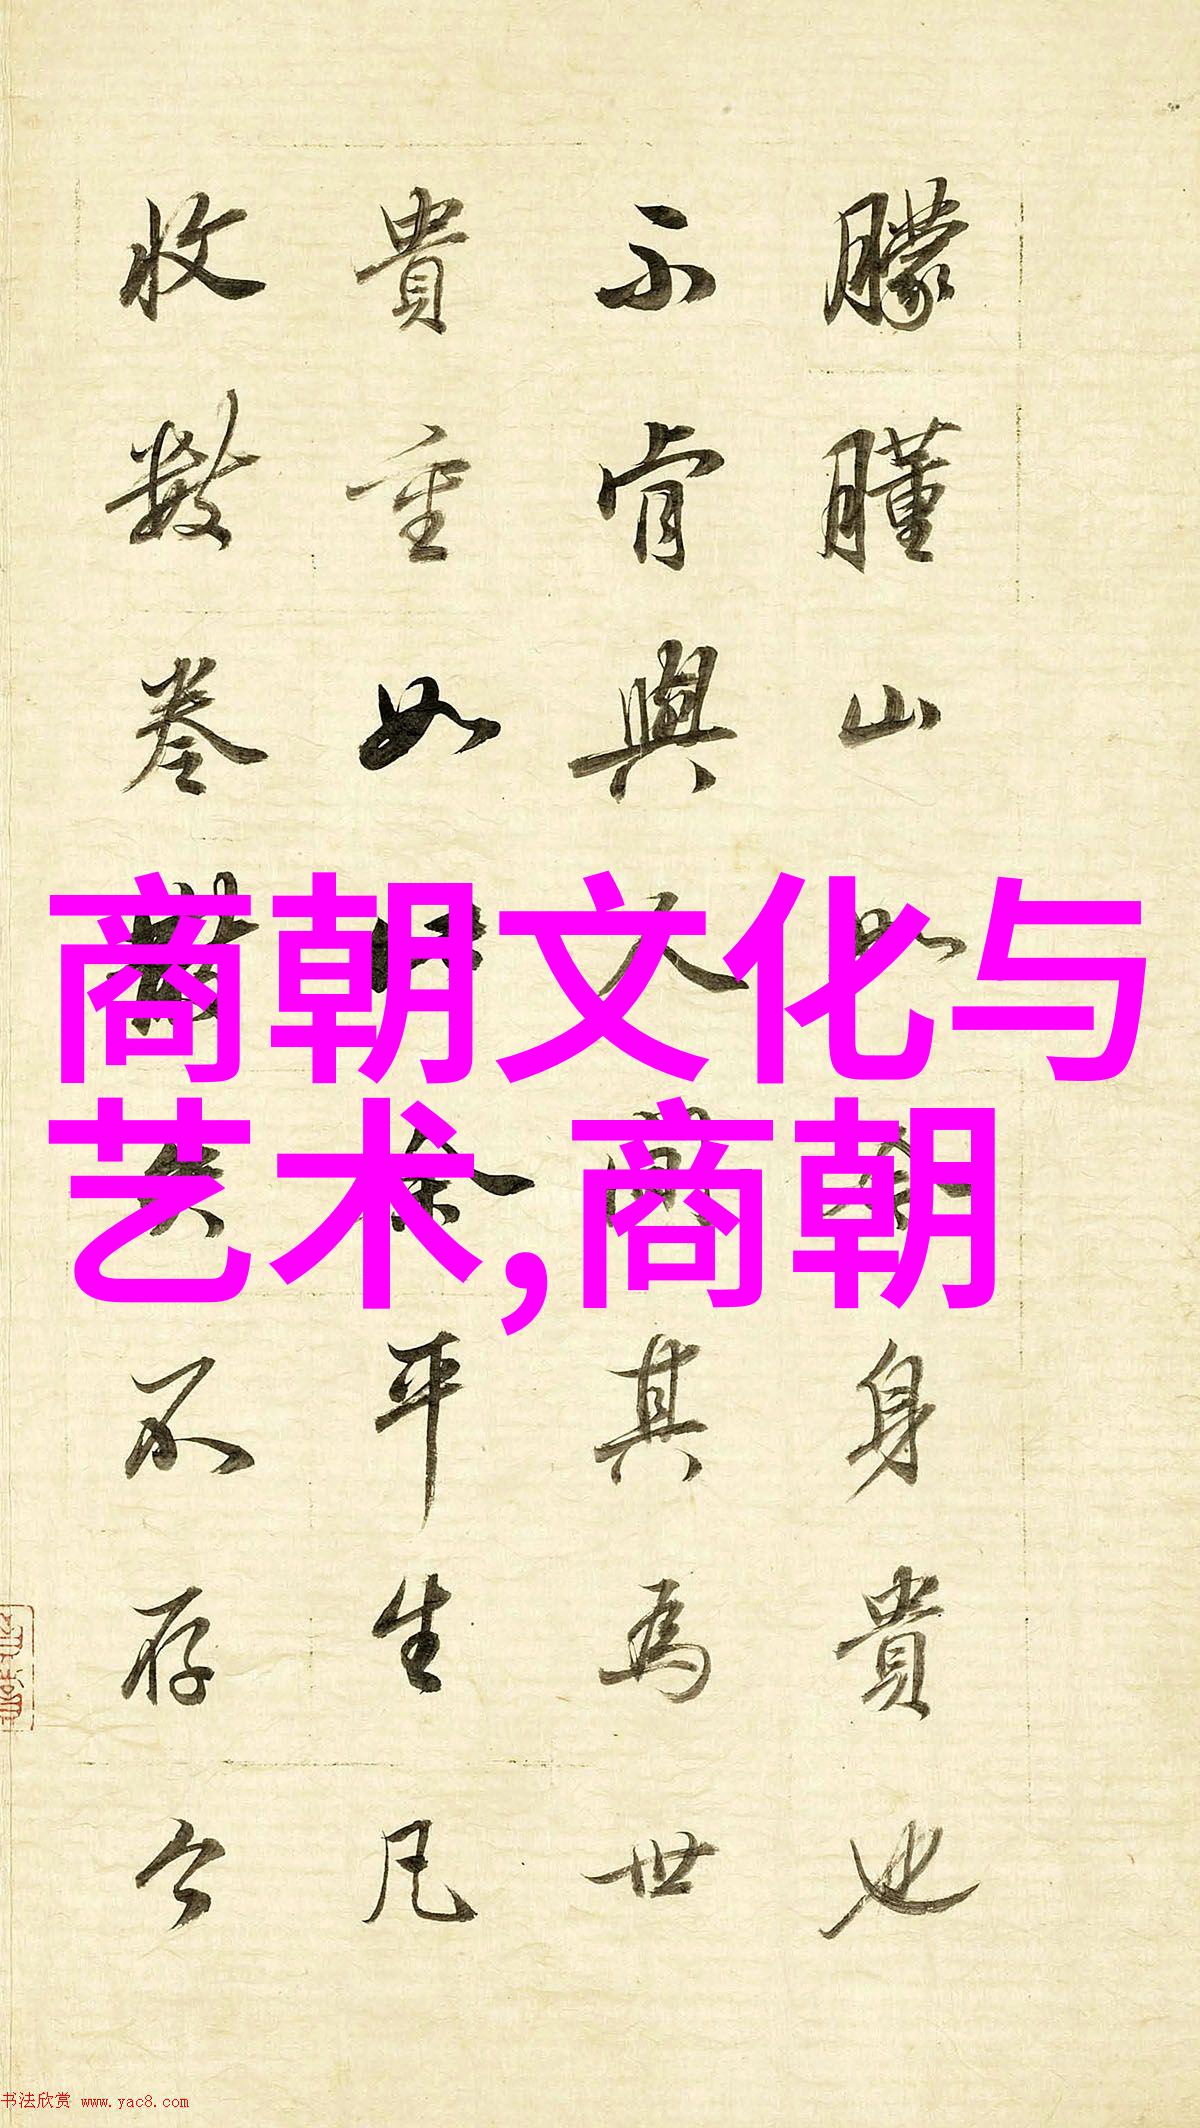 朦山如身貴也
不肯與人其為世
貴重如余平生凡
收數卷散失不存今
商朝文化与
艺术,商朝
书法欣赏 www.yac8.com